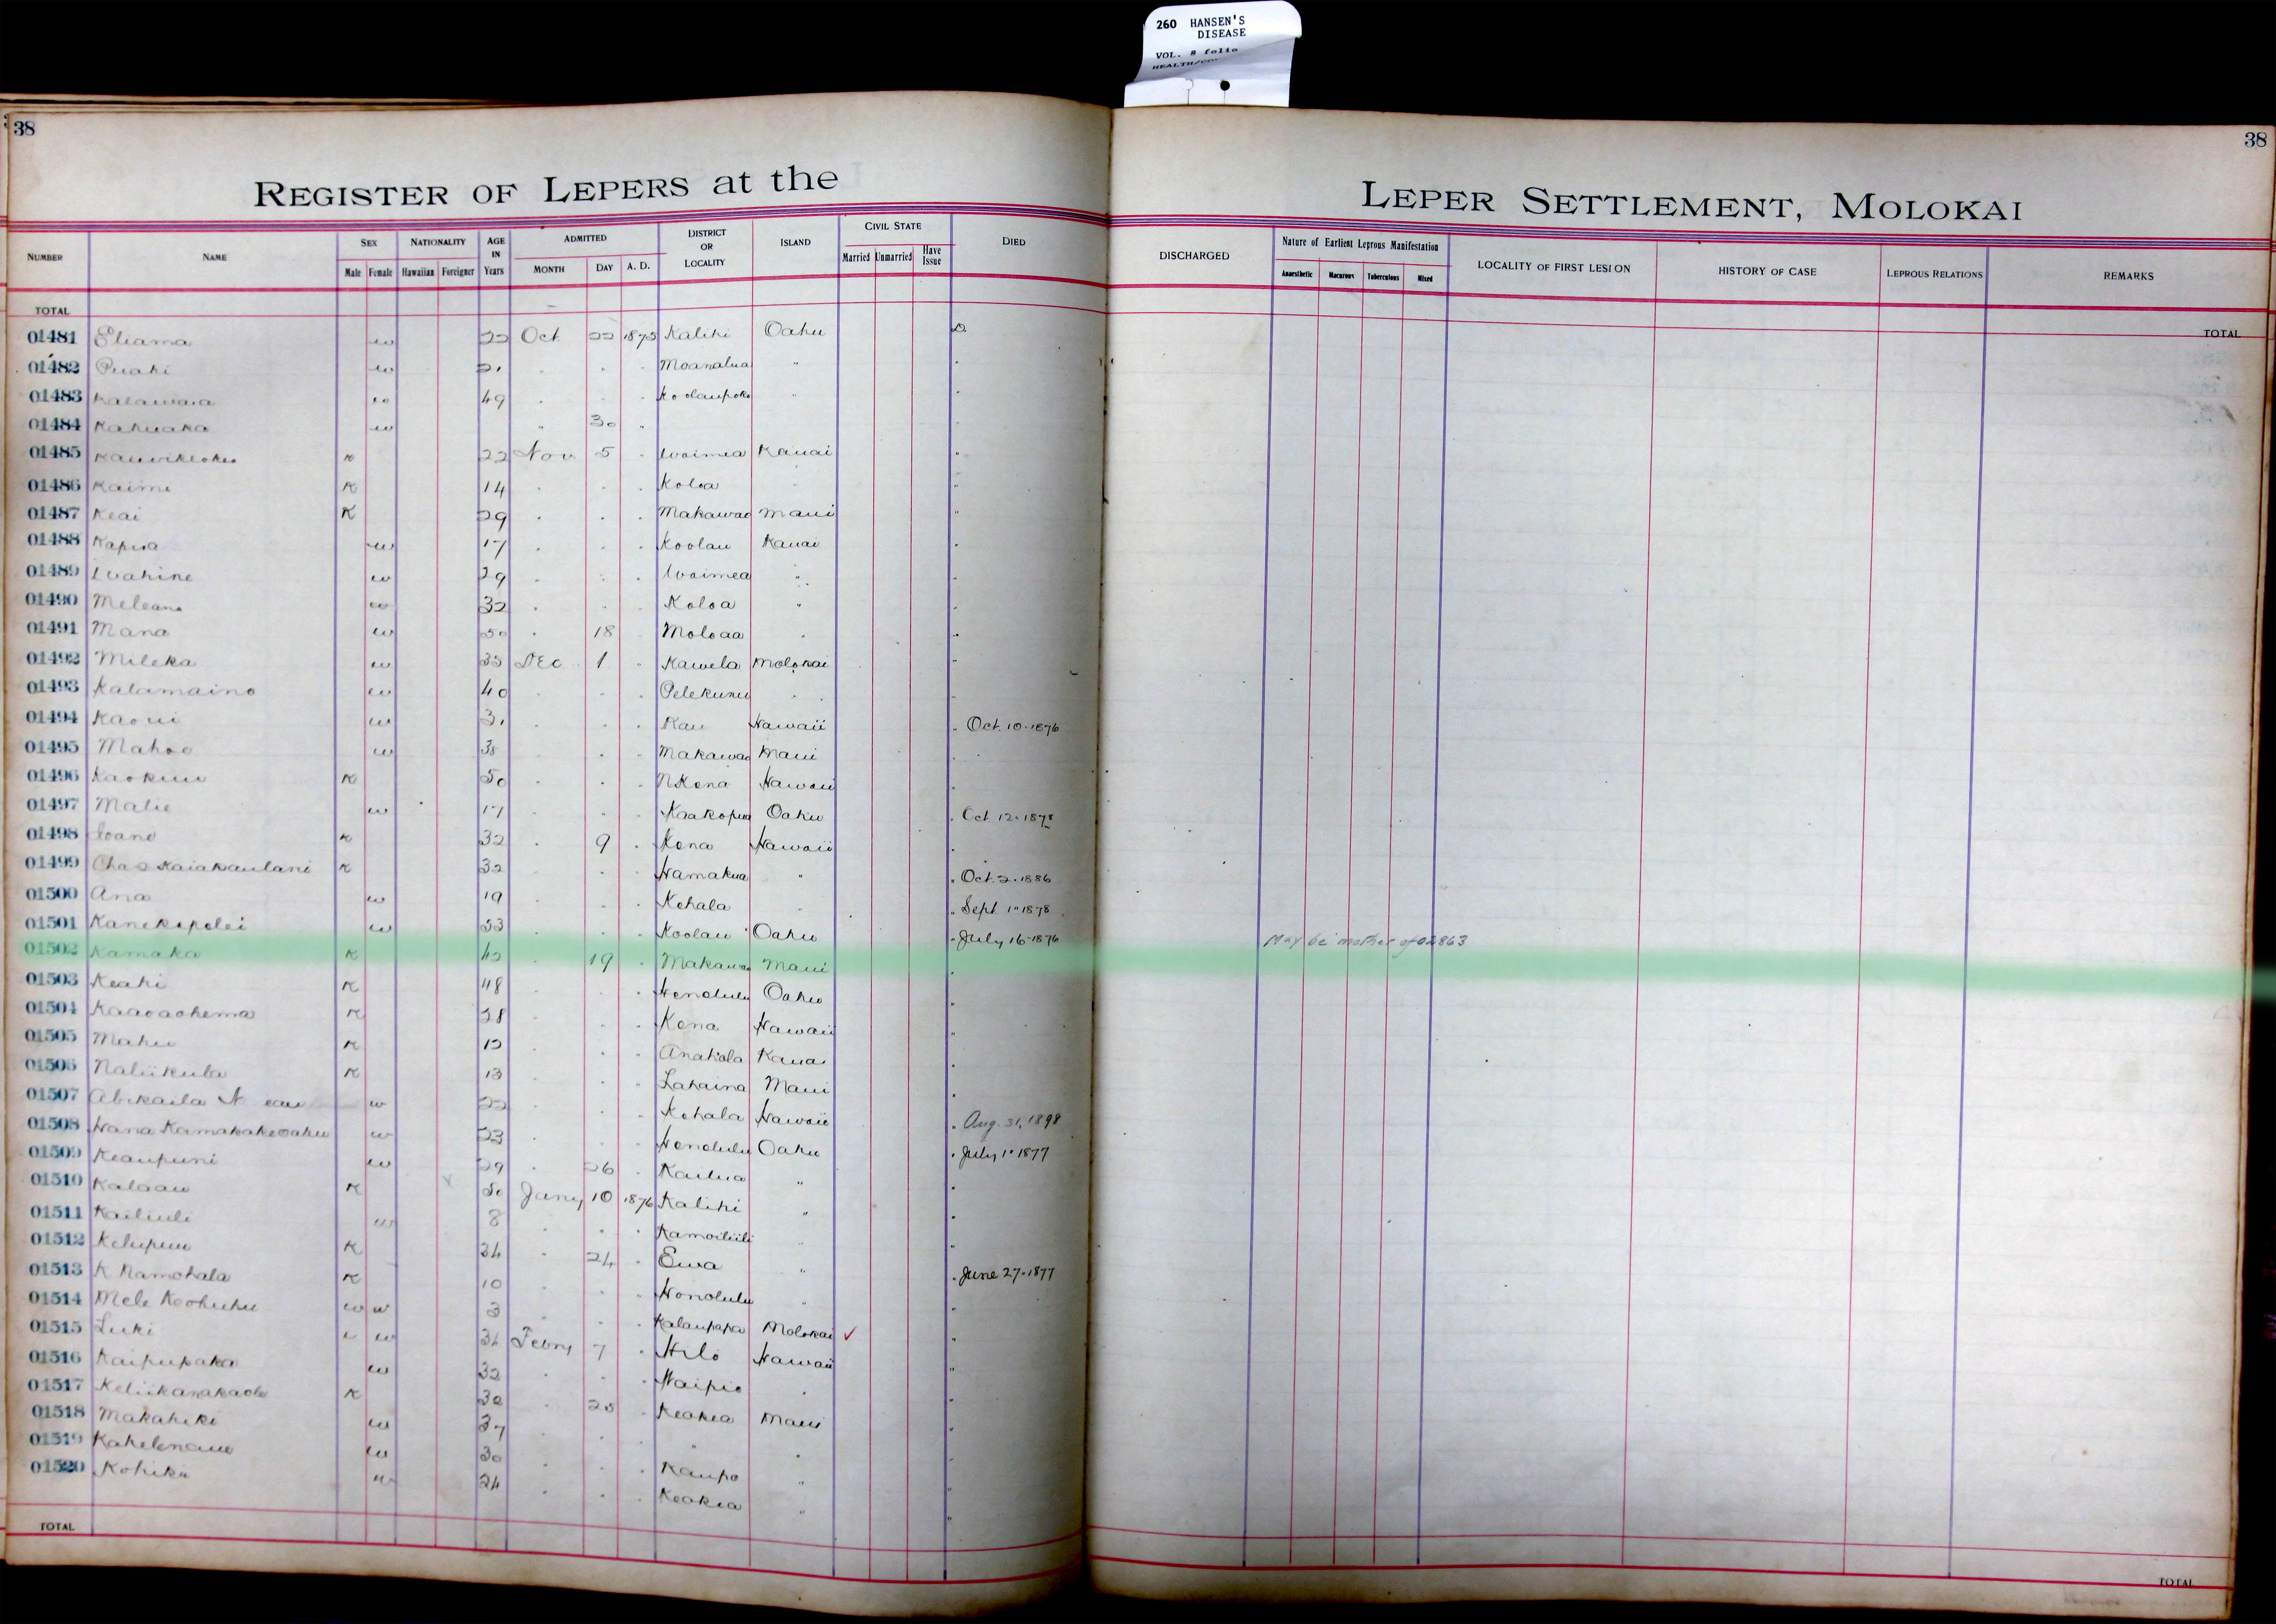 260 HANSEN'S
DISEASE
VOL. 8 folio
38
38
REGISTER OF LEPERS at the LEPER SETTLEMENT, MOLOKAI
NUMBER NAME SEX NATIONALITY AGE IN Years ADMITTED DISTRICT OR LOCALITY ISLAND CIVIL STATE DIED DISCHARGED Nature of Earliest Leprous Manifestation LOCALITY OF FIRST LESION HISTORY OF CASE LEPROUS RELATIONS REMARKS
Male Female Hawaiian Foreigner MONTH DAY A. D. Married Unmarried Have Issue Anaesthetic Macurous Tuberculous Mixed
TOTAL TOTAL
01481 Eliama w 22 Oct 22 1875 Kalihi Oahu D
01482 Puahi w 21 " " " Moanalua "
01483 w 49 " " " Koolaupoko "
01484 Kahuaka w " 30 "
01485 K 22 Nov 5 " Waimea Kauai "
01486 Kaimi K 14 " " " Koloa "
01487 Keai K 29 " " " Makawao Maui "
01488 w 17 " " " Koolau Kauai "
01489 Wahine w 29 " " " Waimea " "
01490 Meleana w 32 " " " Koloa " "
01491 Mana w 50 " 18 " Moloaa " "
01492 Mileka w 35 Dec 1 " Kawela Molokai "
01493 Kalamaino w 40 " " " Pelekunu " "
01494 Kaoui w 31 " " " Kau Hawaii " Oct. 10-1876
01495 Mahoe w 38 " " Makawao Maui "
01496 Kaokuu K 50 " " " N Kona Hawaii "
01497 Malie w 17 " " " Oahu " Oct 12-1878
01498 Ioane K 32 " 9 " Kona Hawaii "
01499 Chas Kaiakaulani K 32 " " " Hamakua " " Oct. 2-1886
01500 Ana w 19 " " " Kohala " " Sept 1-1878
01501 Kanekapolei w 53 " " " Koolau Oahu " July 16-1876 May be mother of 02863
01502 Kamaka K 42 " 19 " Makawao Maui "
01503 Keahi K 48 " " " Honolulu Oahu "
01504 Kaaoaohema K 28 " " " Kona Hawaii "
01505 Mahu K 12 " " " Anahola Kauai "
01506 Naliikula K 13 " " " Lahaina Maui "
01507 Abikaila N w 22 " " " Kohala Hawaii " Aug. 31, 1898
01508 Hana Kamakakeoahu w 23 " " " Honolulu Oahu " July 1-1877
01509 Keaupuni w 29 " 26 " Kailua " "
01510 Kalaau K 50 Jany 10 1876 Kalihi " "
01511 Kailiuli w 8 " " " Kamoiliili " "
01512 Kelupuu K 34 " 24 " Ewa " " June 27-1877
01513 K Namohala K 10 " " " Honolulu " "
01514 Mele Keohuhu w w 3 " " " Kalaupapa Molokai ✓ "
01515 Luki w 34 Febry 7 " Hilo Hawaii "
01516 Kaipupaka w 32 " " " Waipio " "
01517 Keliikanakaole K 30 " 20 " Keokea Maui "
01518 Makahiki w 37 " " " " "
01519 Kahelenaue w 30 " " " Kaupo " "
01520 Kohiki w 24 " " " Keokea " "
TOTAL TOTAL